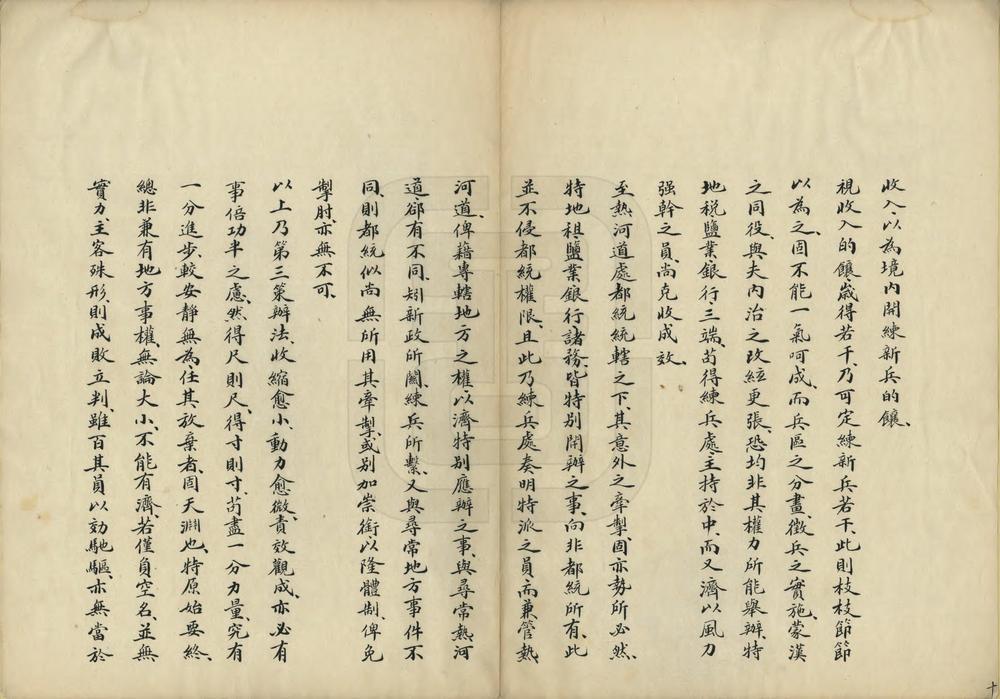 收入、以為境內開練新兵的餉、
視收入的餉、歲得若干、乃可定練新兵若干、此則枝枝節節
以為之、固不能一氣呵成、而兵區之分畫、徵兵之實施、蒙漢
之同役、與夫內治之改絃更張、恐均非其權力所能舉辦、特
地税鹽業銀行三端、苟得練兵處主持於中、而又濟以風力
强幹之員、尚克收成效、
至熱河道處都統統轄之下、其意外之牽掣、固亦勢所必然、
特地租鹽業銀行諸務、皆特別開辦之事、向非都統所有、此
並不侵都統權限、且此乃練兵處奏明特派之員、而兼管熱
河道、俾藉專轄地方之權、以濟特別應辦之事、與尋常熱河
道郤有不同、矧新政所關、練兵所繫、又與尋常地方事件不
同、則都統似尚無所用其牽掣、或別加崇銜、以隆體制、俾免
掣肘、亦無不可、
以上乃第三策辦法、收縮愈小、動力愈微、責效觀成、亦必有
事倍功半之慮、然得尺則尺、得寸則寸、苟盡一分力量、究有
一分進步、較安靜無為、任其放棄者、固天淵也、特原始要終、
總非兼有地方事權、無論大小、不能有濟、若僅負空名、並無
實力、主客殊形、則成敗立判、雖百其員以効馳驅、亦無當於
十